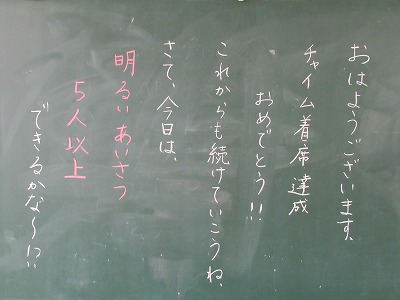 おはようございます、
チャイム着席達成
おめでとう!!
これからも続けていこうね、
さて、今日は、
明るいあいさつ
5人以上
できるかな〜!?